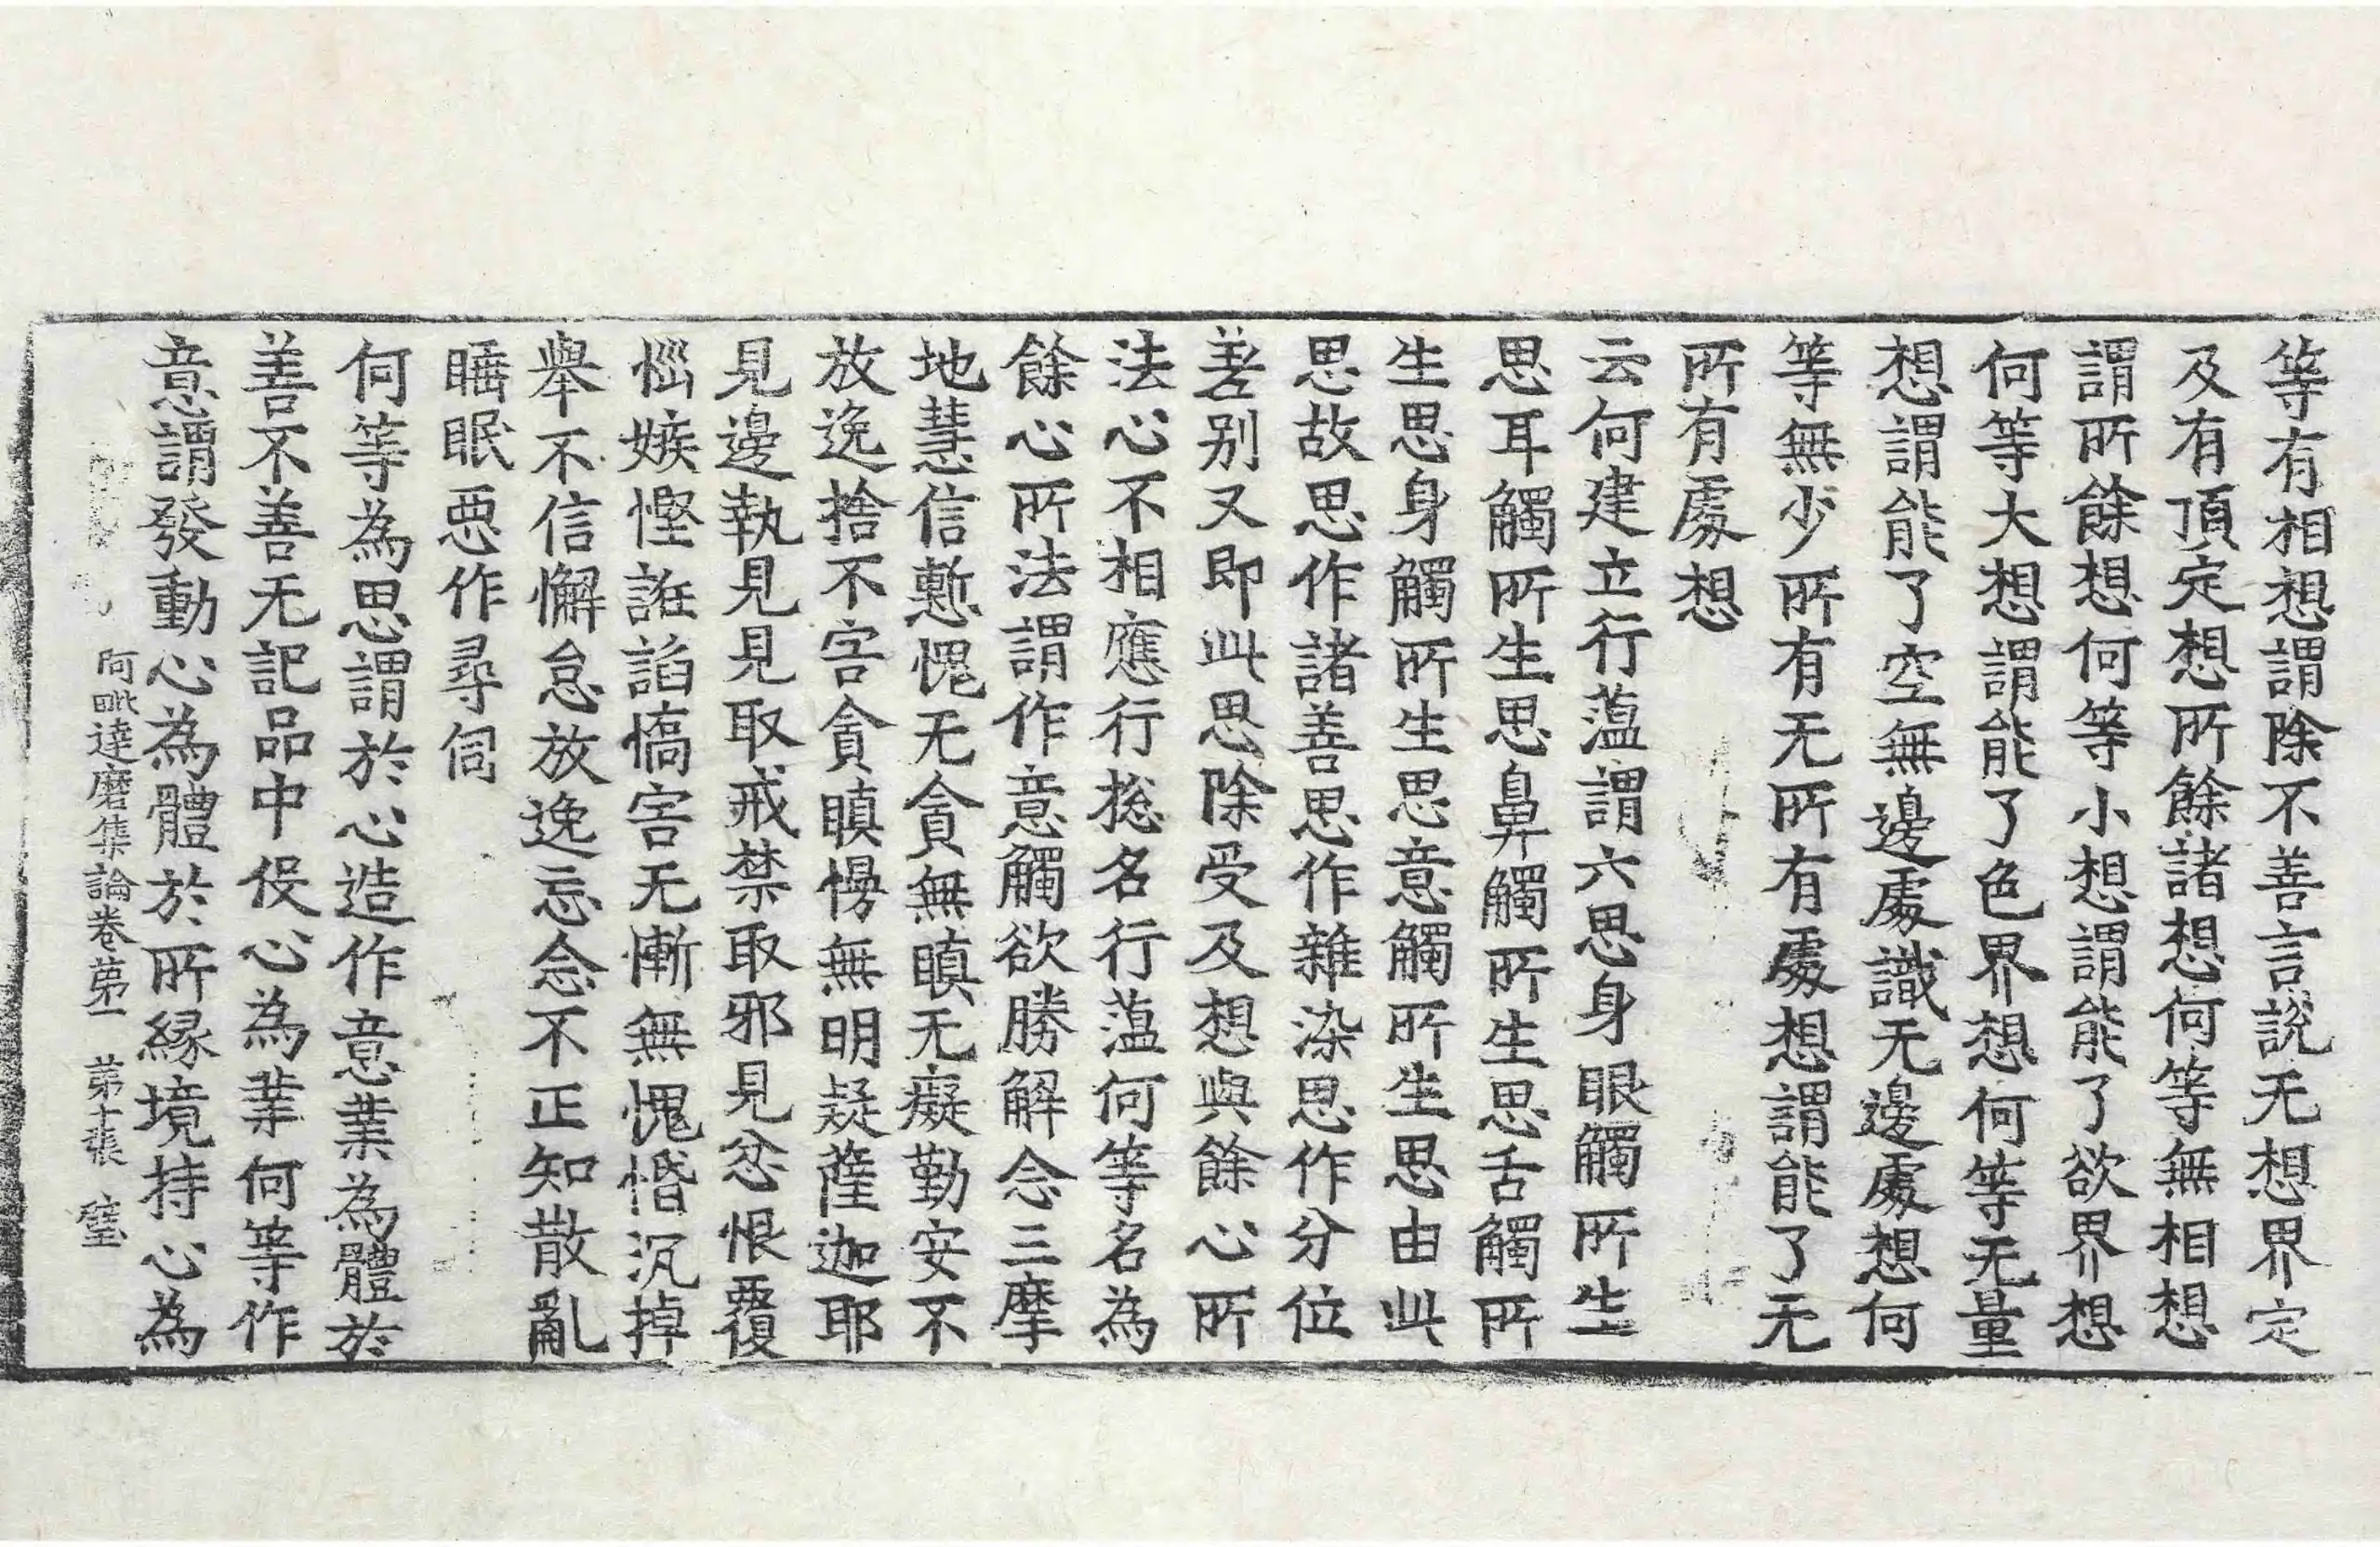 等有相想謂除不善言說无想界定
及有頂定想所餘諸想何等無相想
謂所餘想何等小想謂能了欲界想
何等大想謂能了色界想何等无量
想謂能了空無邊處識无邊處想何
等無少所有无所有處想謂能了无
所有處想
云何建立行薀謂六思身眼觸所生
思耳觸所生思鼻觸所生思舌觸所
生思身觸所生思意觸所生思由此
思故思作諸善思作雜染思作分位
差別又即此思除受及想與餘心所
法心不相應行揔名行薀何等名為
餘心所法謂作意觸欲勝解念三摩
地慧信慙愧无貪無瞋无癡勤安不
放逸捨不害貪瞋慢無明疑薩迦耶
見邊執見見取戒禁取邪見忿恨覆
惱嫉慳誑諂憍害无慚無愧惛沉掉
舉不信懈怠放逸忘念不正知散亂
睡眠惡作尋伺
何等為思謂於心造作意業為體於
善不善无記品中役心為業何等作
意謂發動心為體於所緣境持心為
阿毗達磨集論卷苐一 苐十張 璧